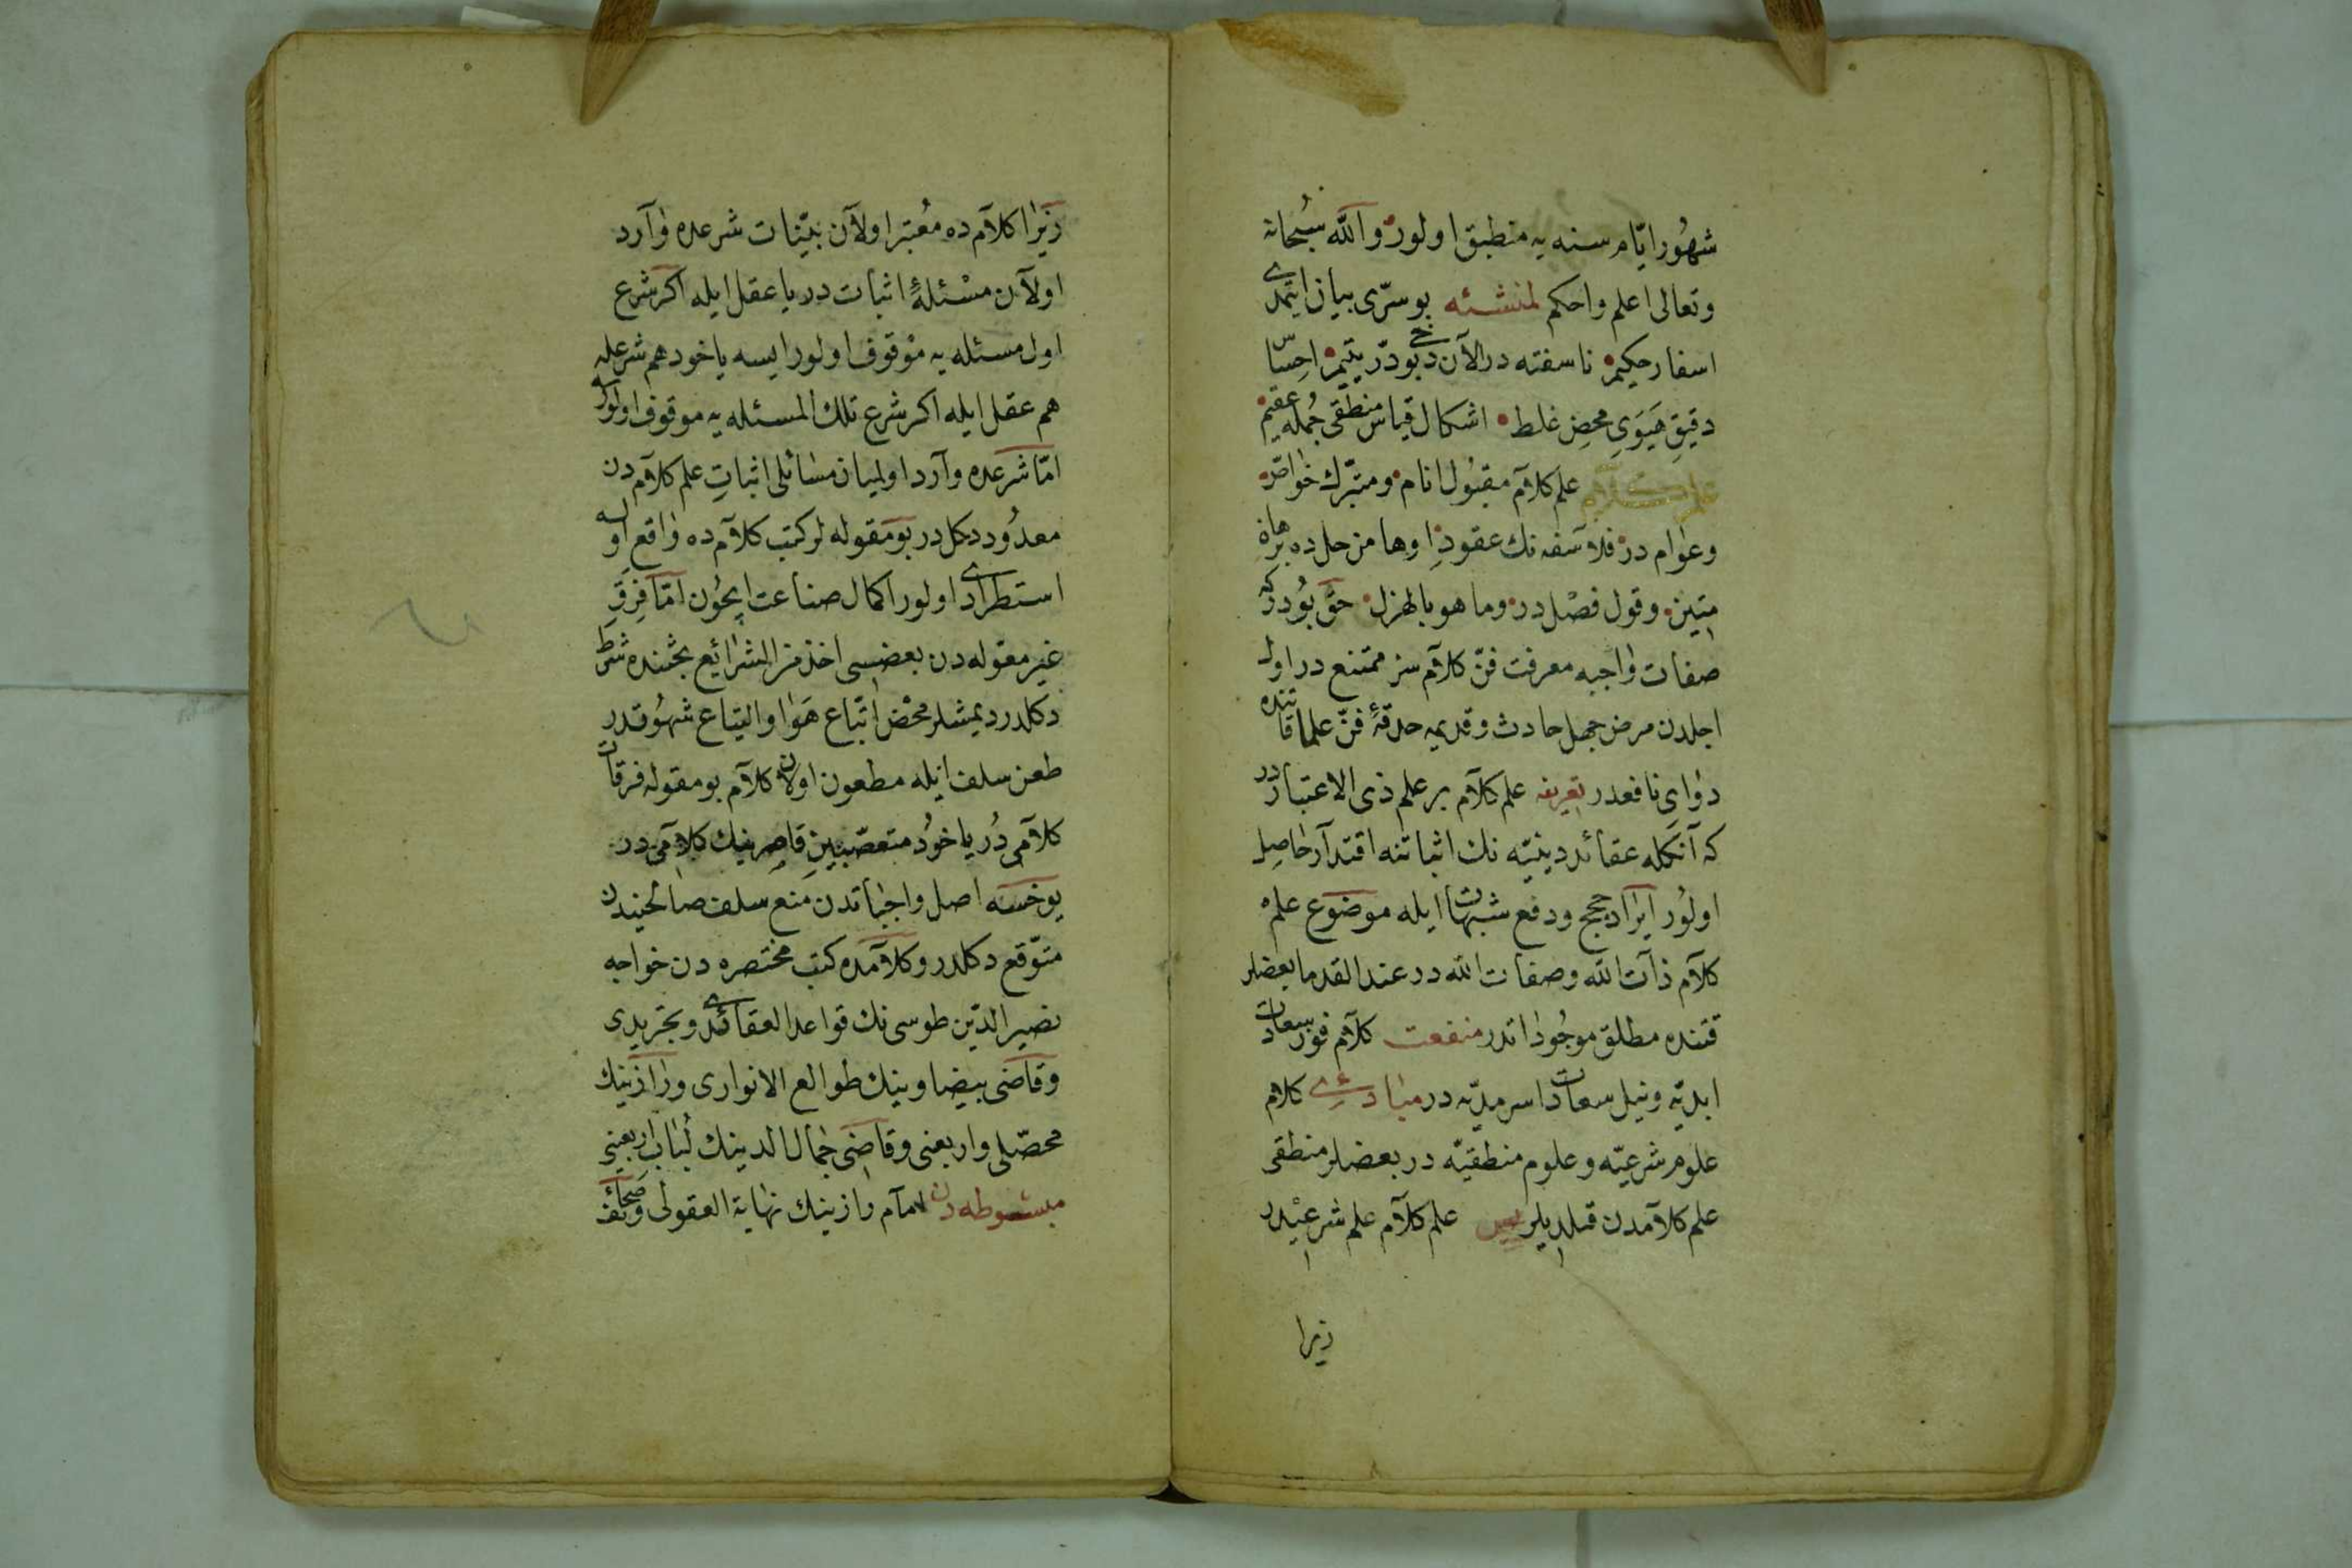 شهُور ايّام سنه يه منطبق اولور والله سُبحانه
وتعالى اعلم واحكم لمنشئه بو سرّى بيان ايتمدى
اسفار حكيم ناسفته در الآن دخى بو درّ يتيم احساس
دقيقِ هَيَوَىِ محضِ غلط اشكال قياس منطقى جُمله عقيم
علم كلام علم كلآم مقبُول انام ومتبرّك خواصّ
وعوام در فلاسفه نك عقودِ اوهامن حل ده برهان
متين وقول فصْل در وما هو بالهزل حقّ بُودركه
صفات واجبه معرفت فنّ كلآم سز ممتنع در اول
اجلدن مرض جهل حادث وقديمه حدقهٔ فنّ علما قاتنده
دواىِ نافعدر تعريفه علم كلآم بر علم ذى الاعتباردر
كه آنكله عقائد دينيّه نك اثباتنه اقتدآر حاصِل
اولوُر ايرَاد حجج ودفع شبهات ايله موضوع علم
كلآم ذآت الله وصفات الله در عند القدما بعضلر
قتنده مطلق موجُوداتدر منفعت كلآم فوز سعادت
ابديّه ونيل سعادات سرمديّه در مبادئ كلام
علوم شرعيّه وعلوم منطقيّه در بعضلر منطقى
علم كلآمدن قلديلر علم كلآم علم شرعيْدر
زيرا
زيرَا كلآم ده مُعْتبر اولآن بيّنات شرعده وآرد
اولآن مسْئلهٔ اثبات در يا عقل ايله اكر شرع
اول مسئله يه موْقوف اولور ايسه ياخود هم شرعله
هم عقل ايله اكر شرع تلك المسئله يه موقوف اولورسه
امّا شرعده وآرد اولميان مسائلى اثباتِ علم كلآم دن
معدُود دكل در بو مَقوله لر كتب كلآم ده واقع اولسه
استطرادى اولور اكمال صناعت ايچُون امّا فِرقِ
غير مقوله دن بعضسى اخذ من الشرائع بحثنده شرط
دكلدر ديمشلر محْض اتّباع هَوَا والتياع شهوُتدر
طعن سلف ايله مطعون اولان كلآم بو مقوله فرقات
كلآمى دُر ياخوُد متعصّبينِ قاصِرينك كلآمى در
يوخسَه اصل واجباتدن منع سلف صالحيندن
متوّقع دكلدر وكلآمده كتب مختصره دن خواجه
نصير الدّين طوسى نك قواعد العقائدى وتجريدى
وقاضى بيضاوينك طوالع الانوارى ورازينك
محصّلى واربعنى وقاضى جمال الدينك لُباب اربعينى
مبسُوطه دن امآم رازينك نهاية العقولى وصحائف